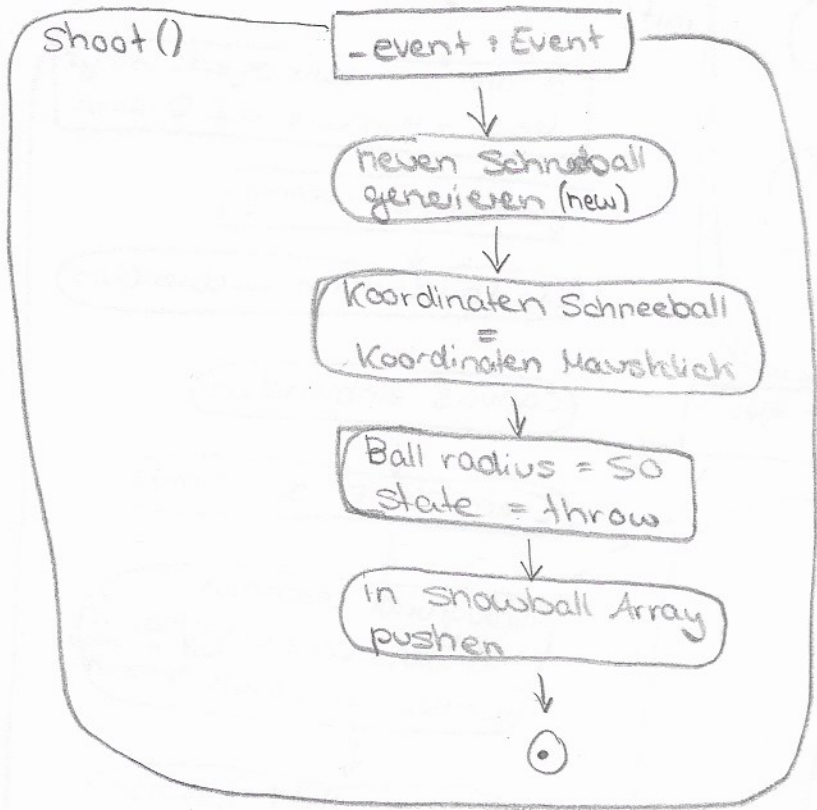 Shoot()
_event : Event
neuen Schneeball
generieren (new)
Koordinaten Schneeball
=
Koordinaten Mausklick
Ball radius = 50
state = throw
in snowball Array
pushen